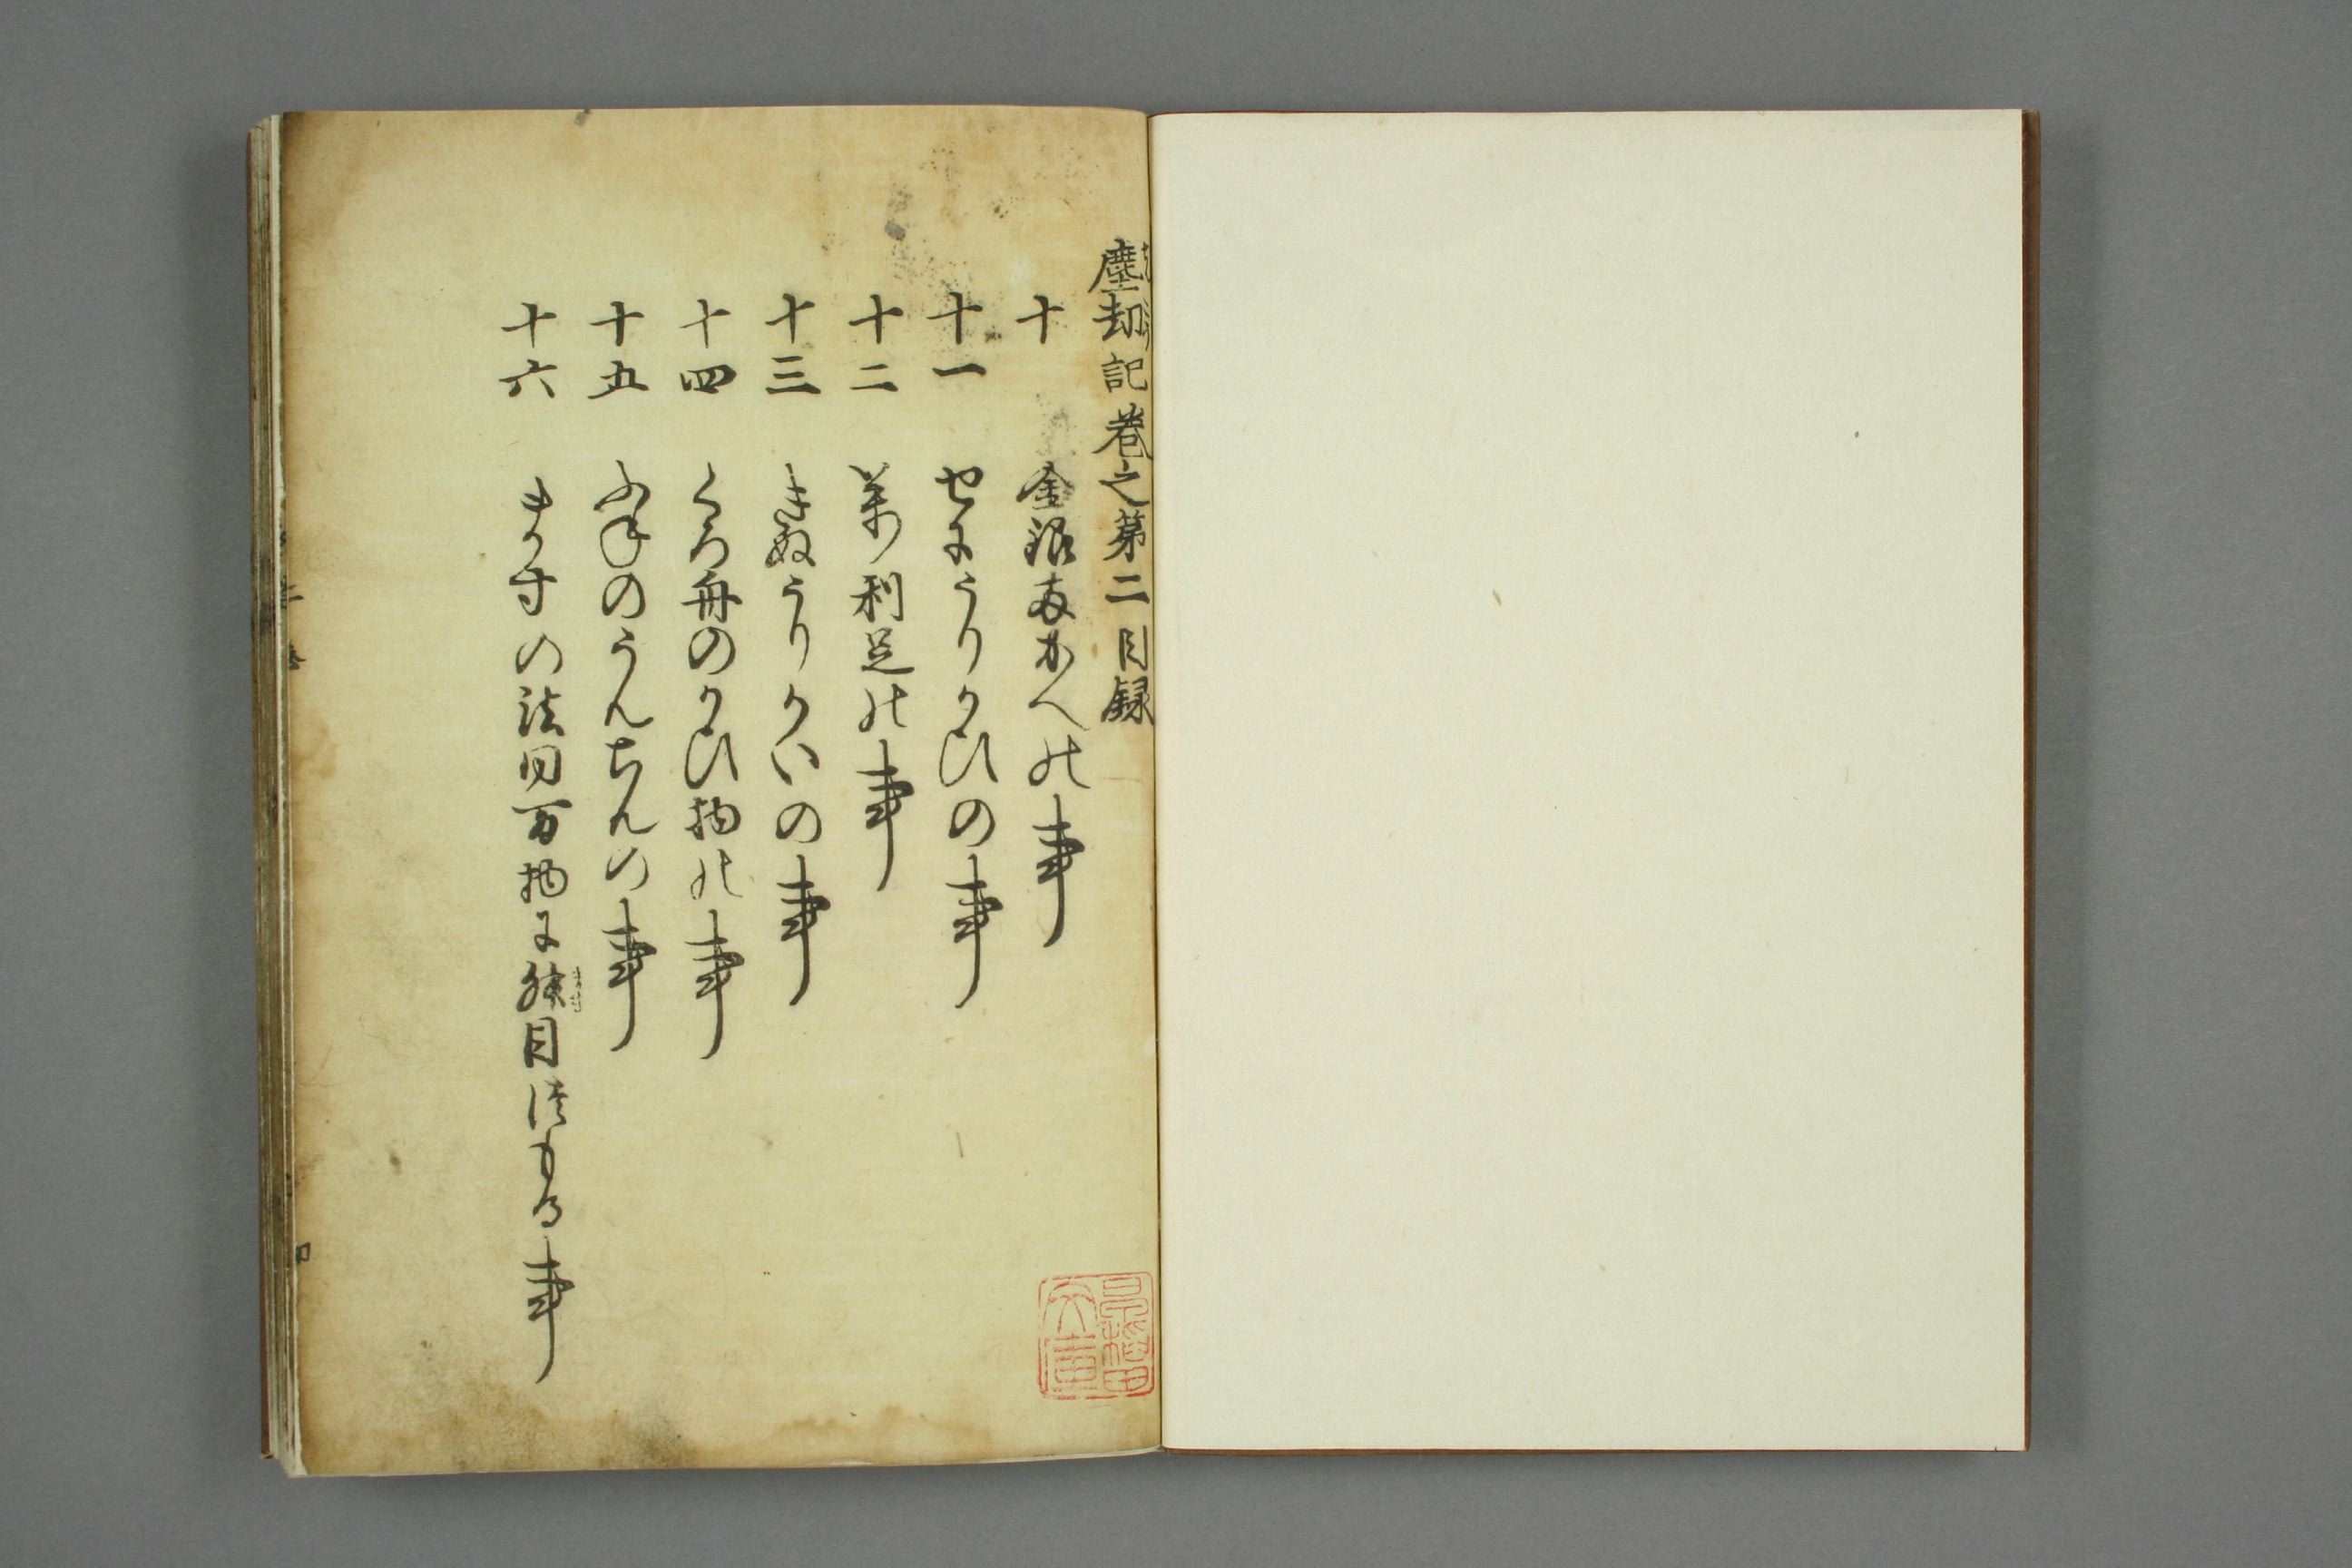 塵劫記巻之第二目録
十 金銀両かへの事
十一 せにうりかひの事
十二 万利足の事
十三 きぬうりかいの事
十四 くろ舟のかひ物の事
十五 ふねのうんちんの事
十六 ますの法同万物に 目つもる事